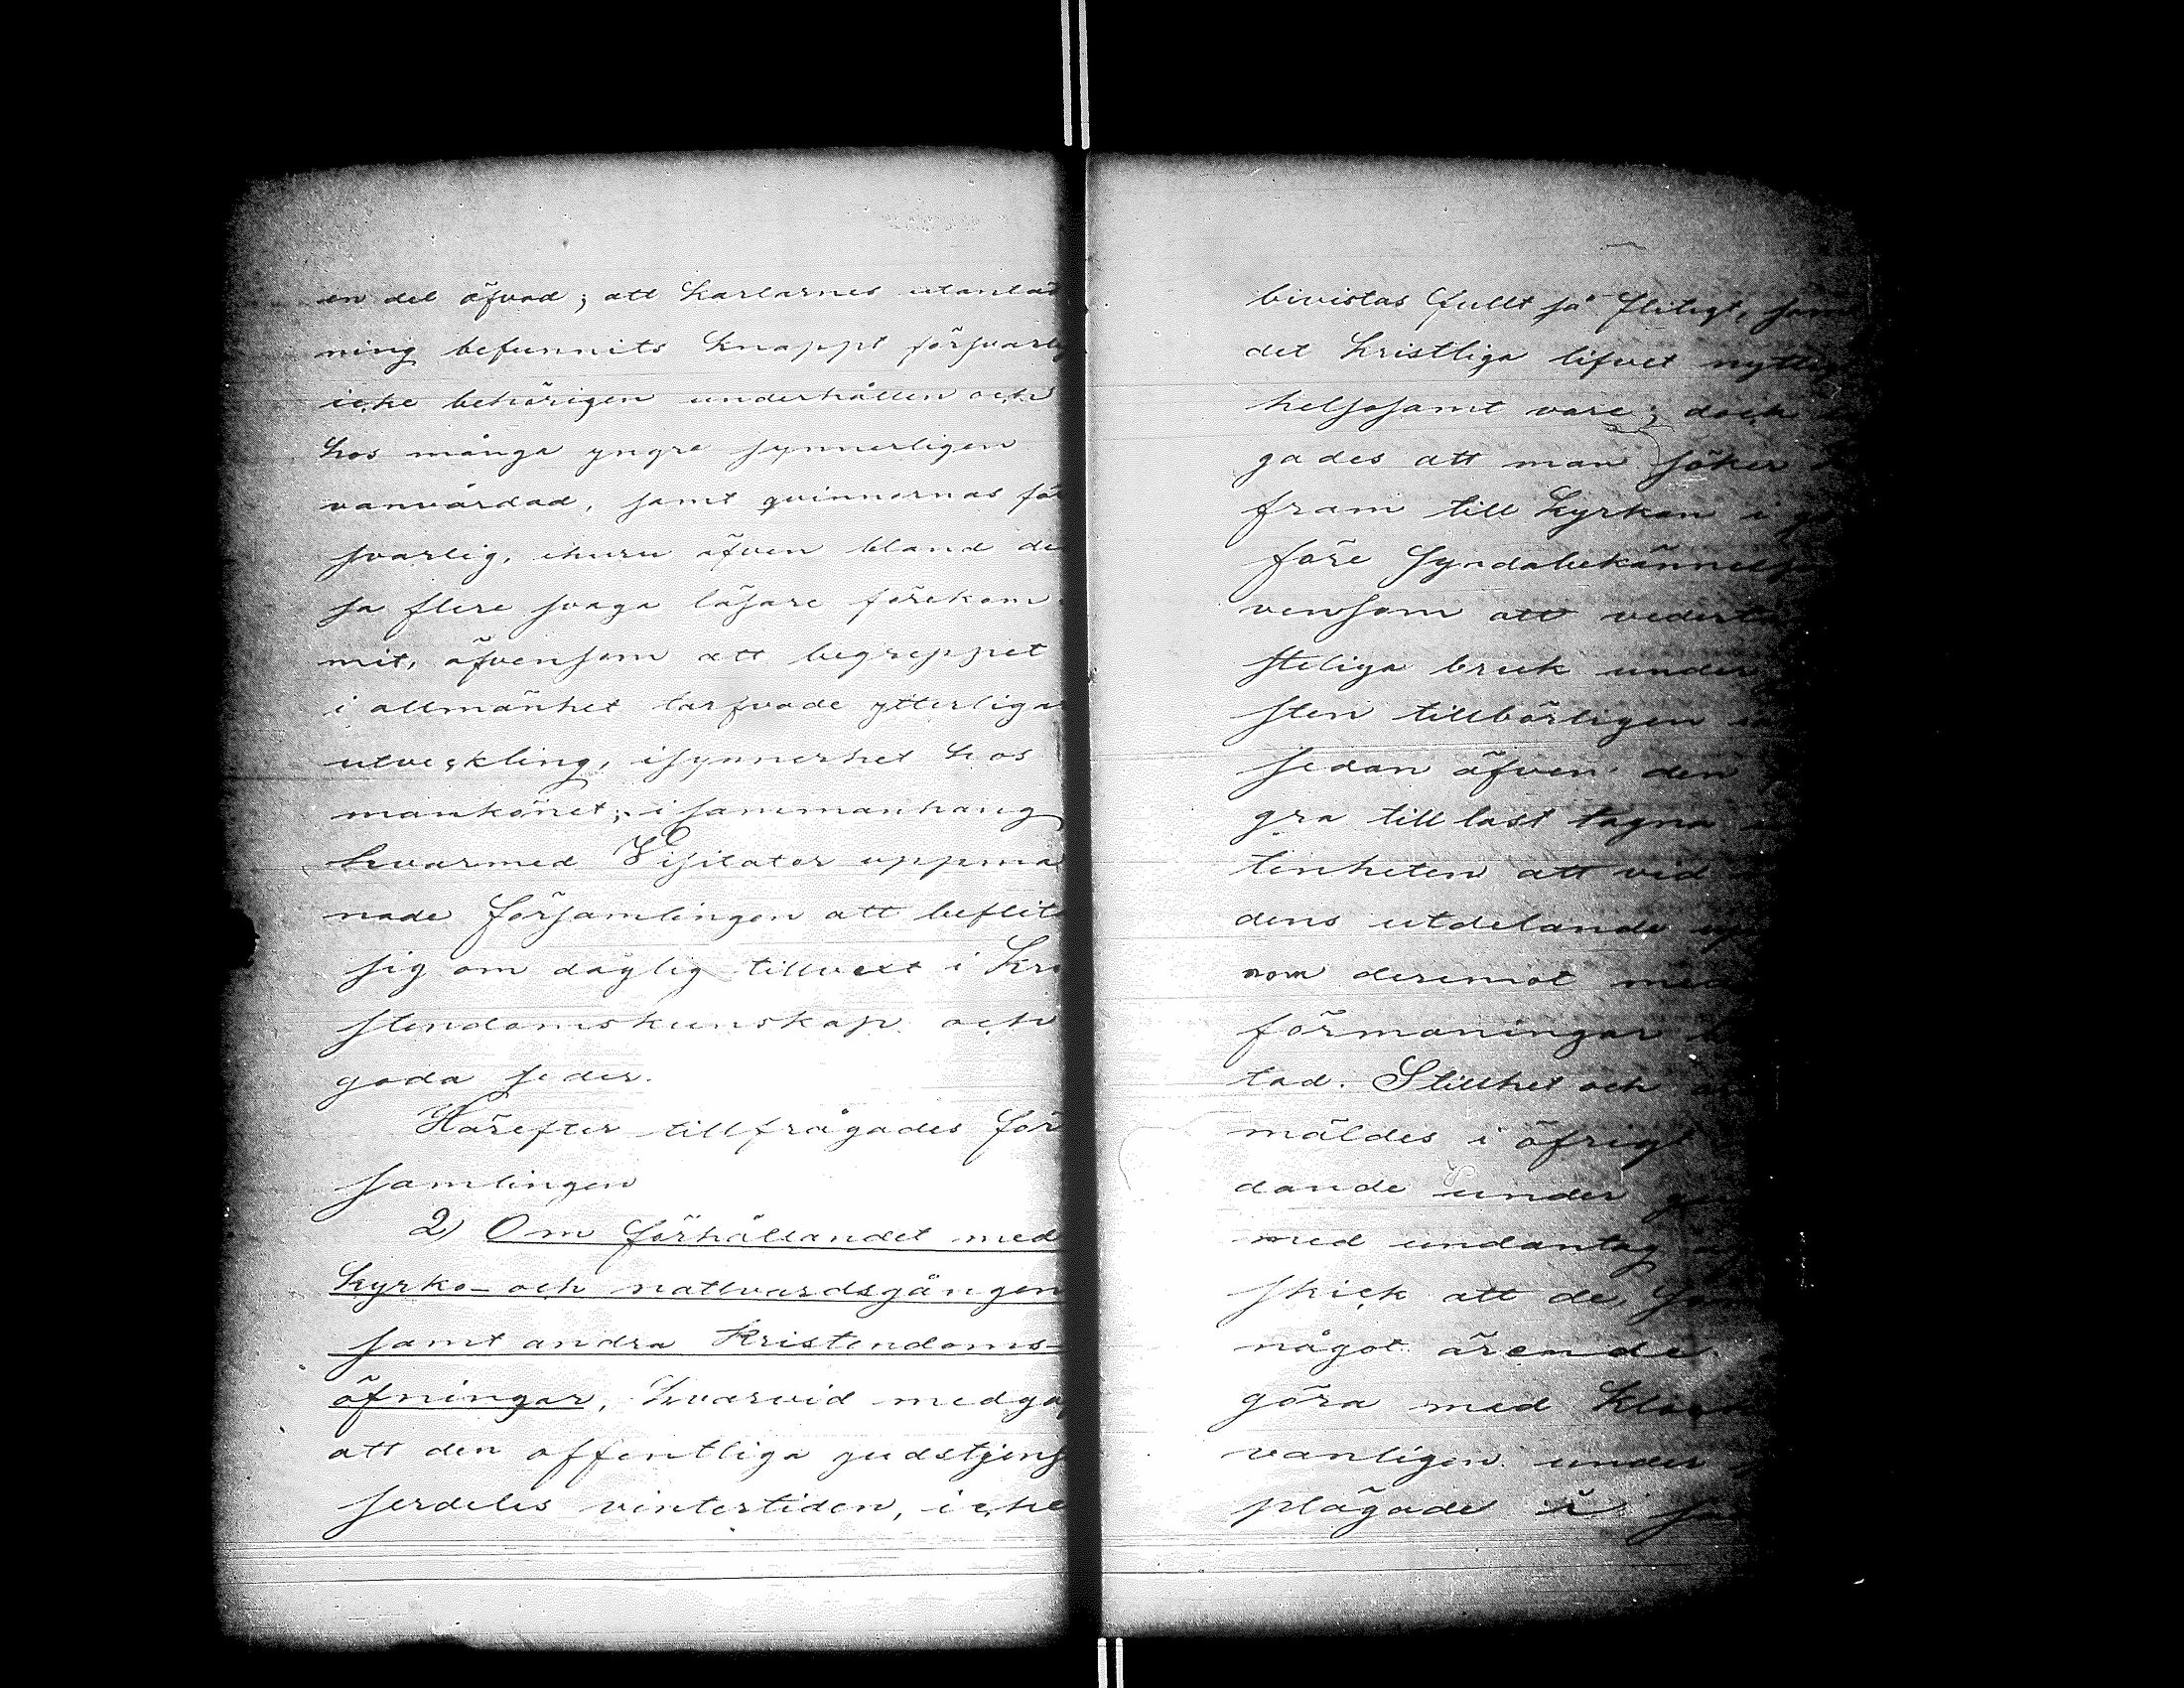 en del öfvad; att karlarnes utanläs
ning befunnits knappt försvarlig
icke behörigen underhållen och
hos många yngre synnerligen
vanvårdad, samt qvinnornas för
svarlig, ehuru äfven bland de
sa flere svaga läsare förekom
mit, äfvensom att begreppet
i allmänhet tarfvade ytterligar
utveckling, isynnerhet hos
mankönet; i sammanhang
hvarmed Visitator uppma
nade församlingen att beflit
sig om daglig tillvext i Kri
stendomskunskap och
goda seder.
Härefter tillfrågades för
samlingen
2) Om förhållandet med
kyrko- och nattvardsgången
samt andra Kristendoms-
öfningar, hvarvid medgaf
att den offentliga gudstjens
serdeles vintertiden, icke
bivistas fullt så flitigt, som
det kristliga lifvet nyttig
helsosamt vore; dock
gades att man söker
fram till kyrkan i
före syndabekännelse
vensom att vederta
steliga bruk under
sten tillbörligen
sedan äfven den
gra till last tagna
tenheten att vid
dens utdelande
nom deremot med
förmaningar
tad. Stillhet och
mäldes i öfrigt
dande under
med undantag
skick att de, som
något ärende
göra med Klock
vanligen under
plägade i